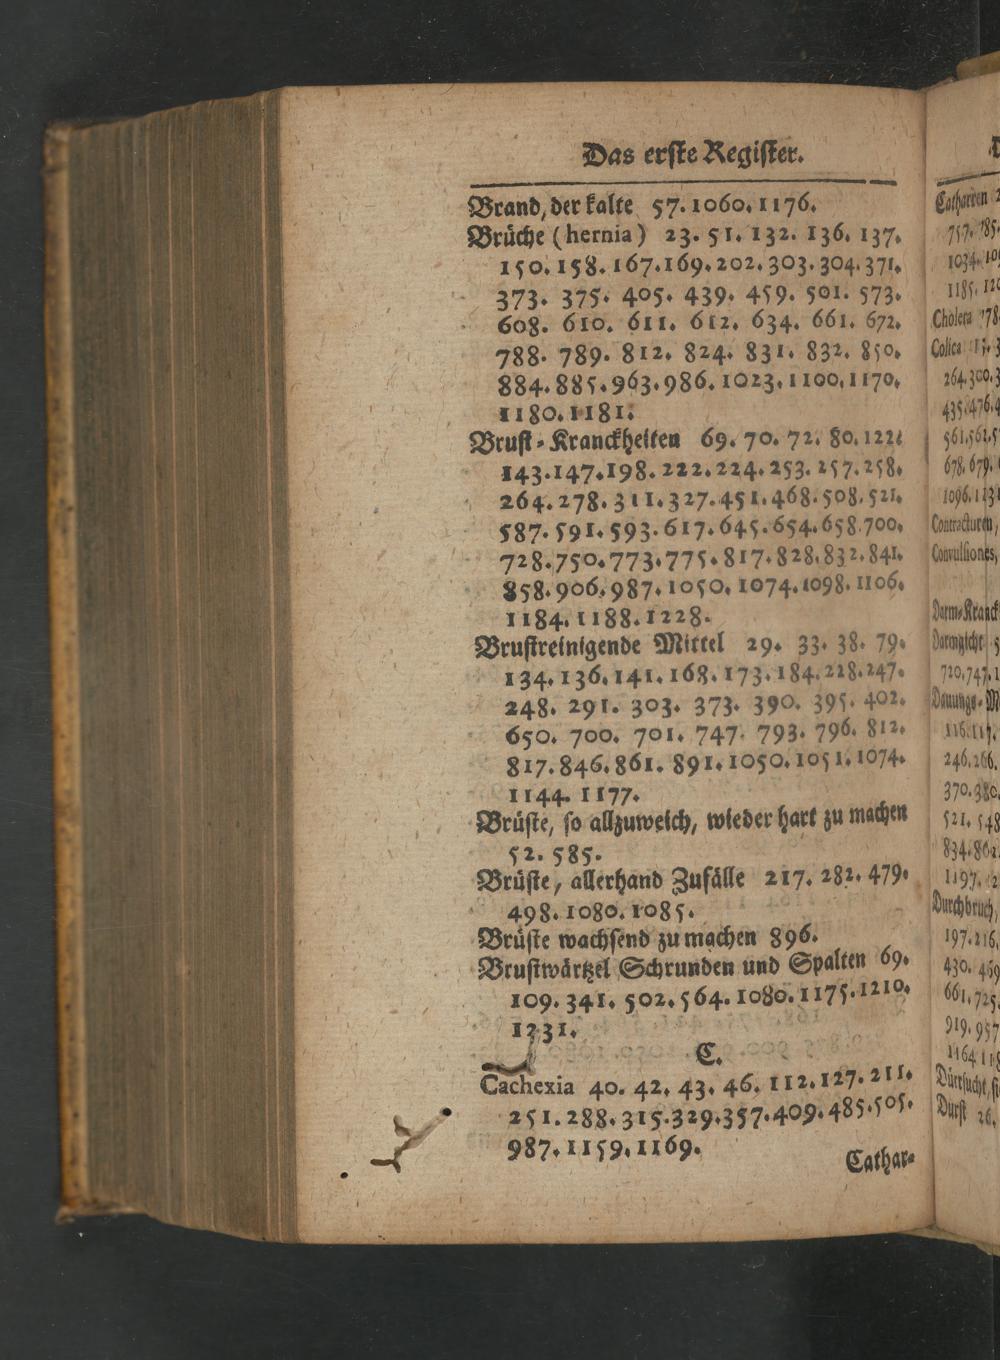 Das erste Register.
Brand, der kalte 57. 1060. 1176.
Brüche (hernia) 23. 51. 132. 136. 137.
150. 158. 167. 169. 202. 303. 304. 371.
373. 375. 405. 439. 459. 501. 573.
608. 610. 611. 612. 634. 661. 672.
788. 789. 812. 824. 831. 832. 850.
884. 885. 963. 986. 1023. 1100. 1170.
1180. 1181.
Brust-Kranckheiten 69. 70. 72. 80. 122.
143. 147. 198. 222. 224. 253. 257. 258.
264. 278. 311. 327. 451. 468. 508. 521.
587. 591. 593. 617. 645. 654. 658. 700.
728. 750. 773. 775. 817. 828. 832. 841.
858. 906. 987. 1050. 1074. 1098. 1106.
1184. 1188. 1228.
Brustreinigende Mittel 29. 33. 38. 79.
134. 136. 141. 168. 173. 184. 228. 247.
248. 291. 303. 373. 390. 395. 402.
650. 700. 701. 747. 793. 796. 812.
817. 846. 861. 891. 1050. 1051. 1074.
1144. 1177.
Brüste, so allzuweich, wieder hart zu machen
52. 585.
Brüste, allerhand Zufälle 217. 282. 479.
498. 1080. 1085.
Brüste wachsend zu machen 896.
Brustwärtzel Schrunden und Spalten 69.
109. 341. 502. 564. 1080. 1175. 1210.
1231.
C.
Cachexia 40. 42. 43. 46. 112. 127. 211.
251. 288. 315. 329. 357. 409. 485. 505.
987. 1159. 1169.
Cathar-
Catharren
757. 785.
1034.
1185.
Cholera
Colica
264. 300.
435. 476.
561. 562.
678. 679.
1096.
Contracturen,
Convulsiones,
Darm-Kranck
Darmgicht
720. 747.
Dauungs-
116. 117.
246. 266.
370. 380.
521. 548
834.
1197.
Durchbruch,
197. 216.
430. 469
661. 725.
919. 957
1164
Dürrsucht,
Durst 26.